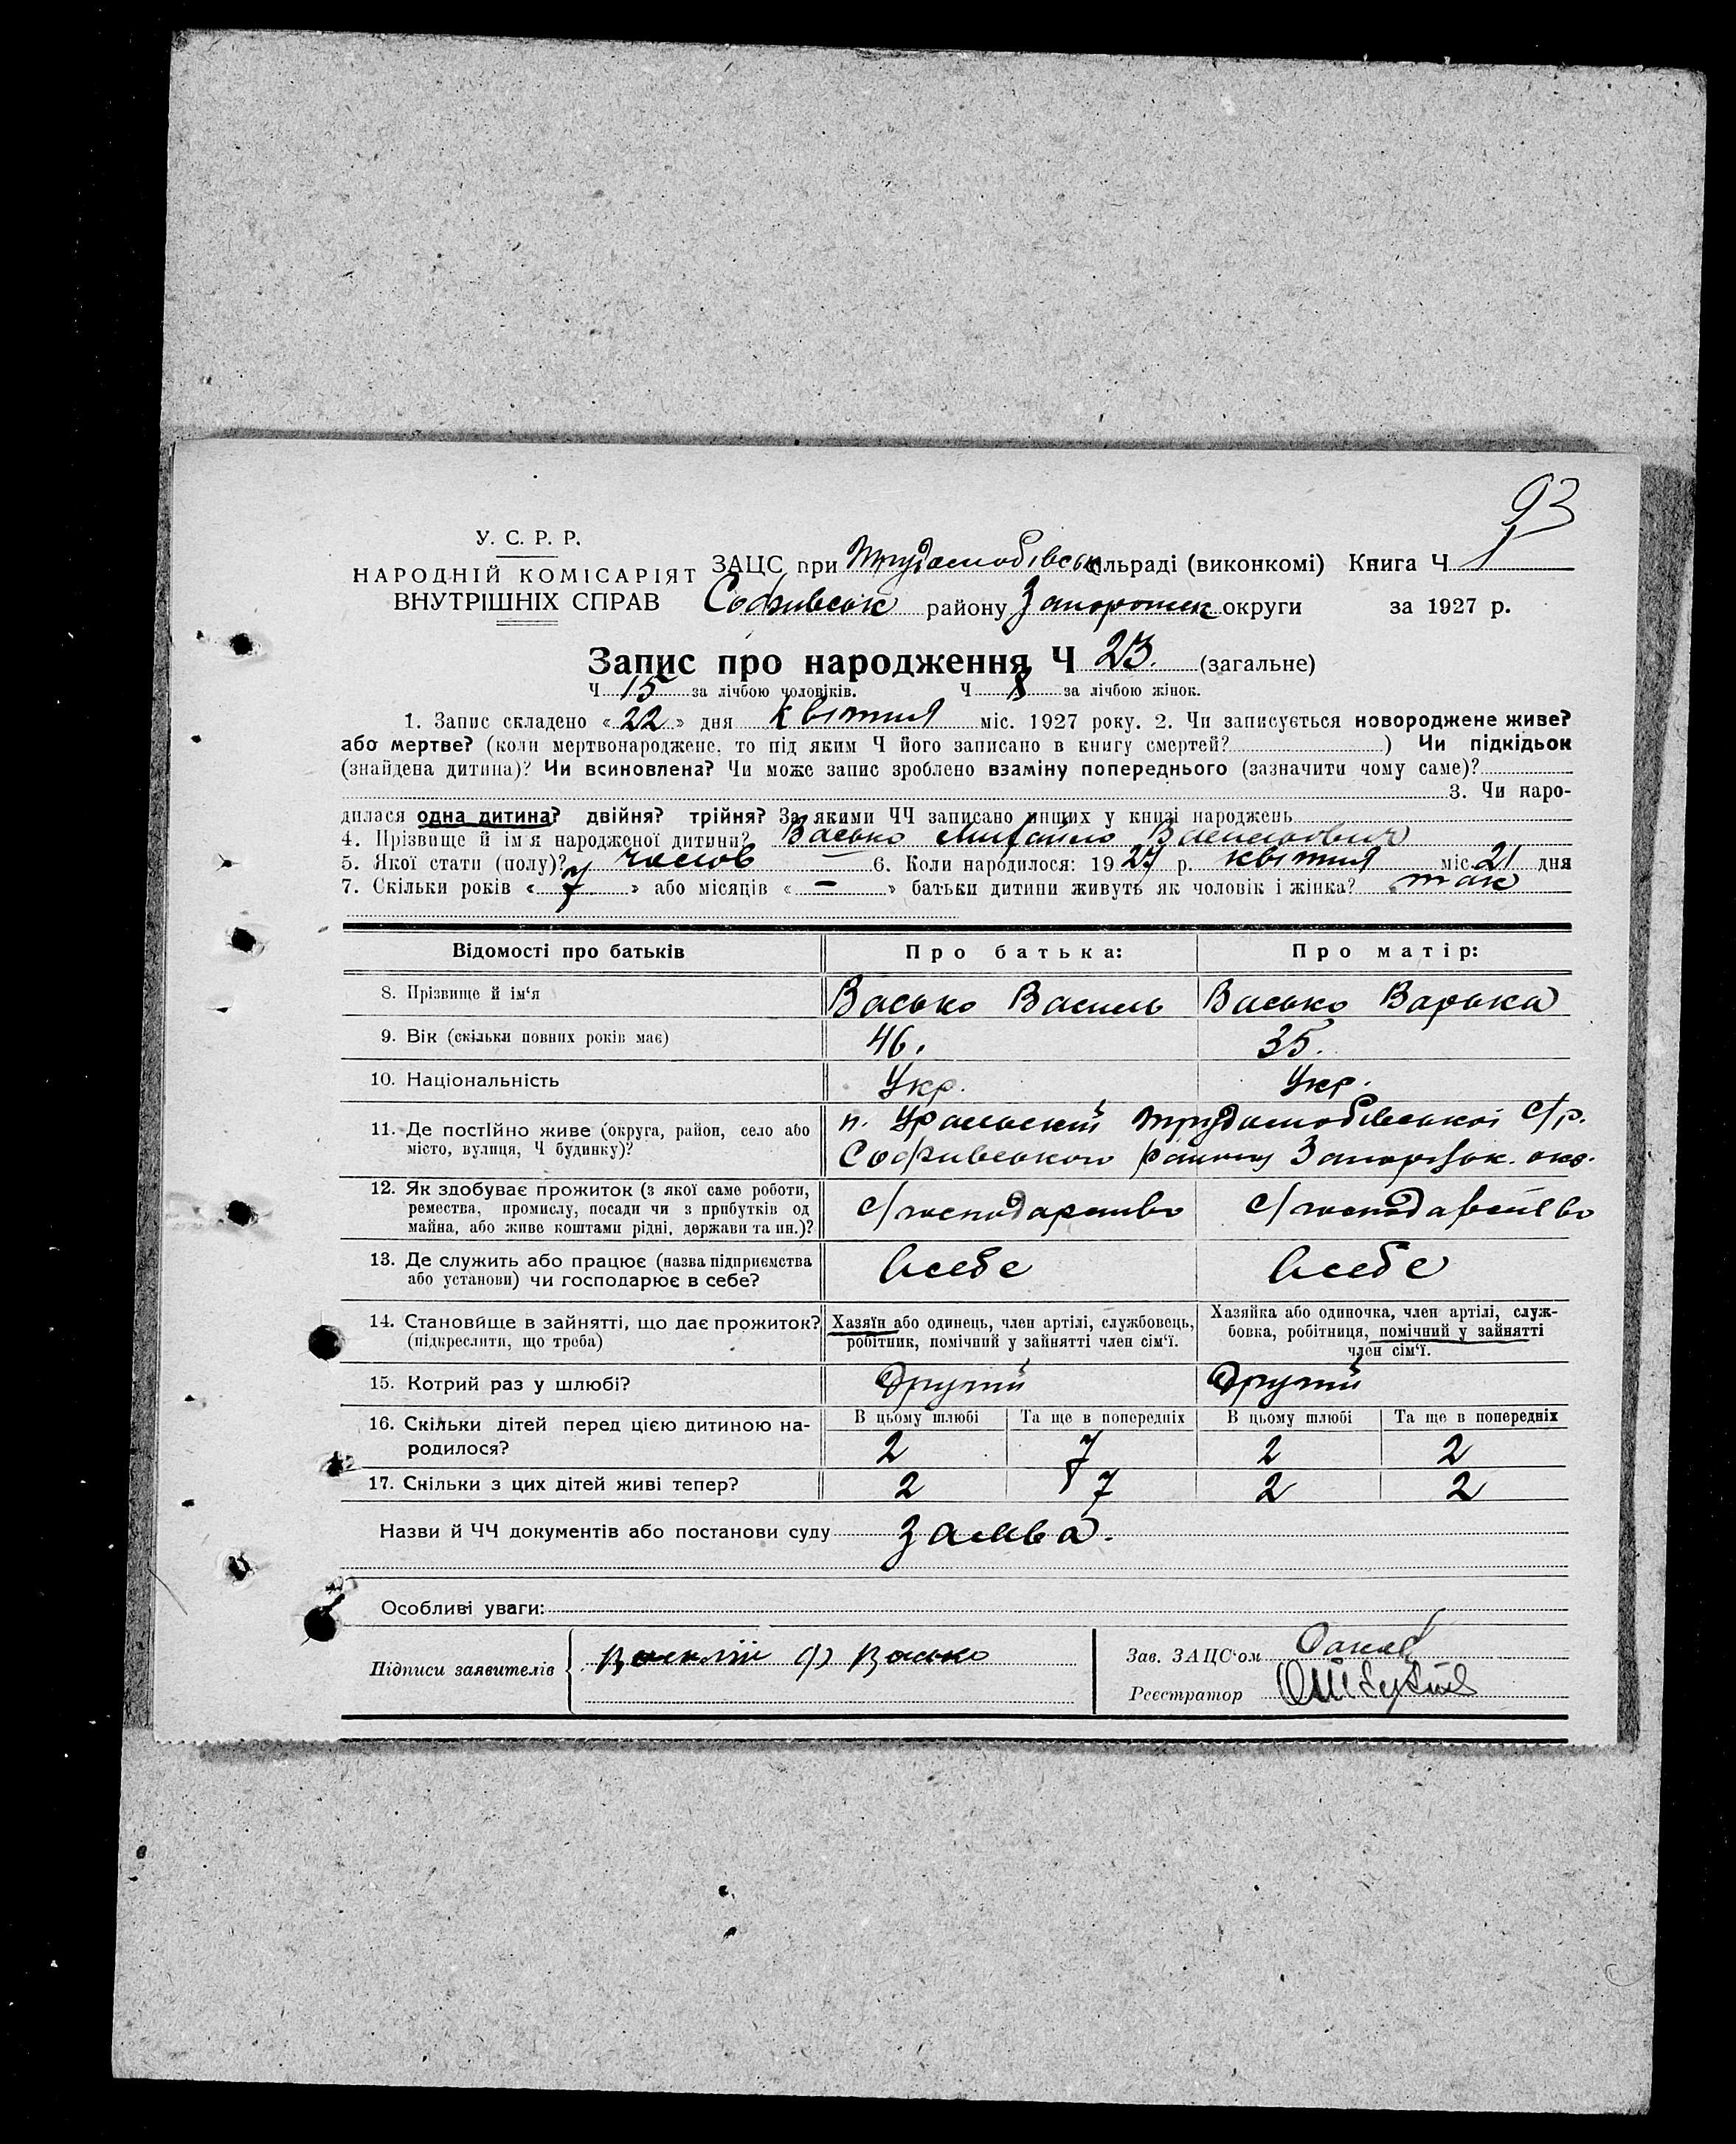 93
У. С. Р. Р.
НАРОДНІЙ КОМІСАРІЯТ
ВНУТРІШНІХ СПРАВ
ЗАЦС при Трудолюбівськ сільраді (виконкомі) Книга Ч 1
Софиївськ району Запорожськ округи за 1927 р.
Запис про народження Ч 23. (загальне)
Ч 15 за лічбою чоловіків. Ч 8 за лічбою жінок.
1. Запис складено «22» дня квітня міс. 1927 року. 2. Чи записується новороджене живе?
або мертве? (коли мертвонароджене, то під яким Ч його записано в книгу смертей? ) Чи підкідьок
(знайдена дитина)? Чи всиновлена? Чи може запис зроблено взаміну попереднього (зазначити чому саме)?
3. Чи наро-
дилася одна дитина? двійня? трійня? За якими ЧЧ записано инших у книзі народжень
4. Прізвище й ім'я народженої дитини? Васько Михайло Васильович
5. Якої стати (полу)? чолов 6. Коли народилося: 1927 р. квітня міс. 21 дня
7. Скільки років «7» або місяців «–» батьки дитини живуть як чоловік і жінка? так
Відомості про батьків Про батька: Про матір:
8. Прізвище й ім'я Васько Василь Васько Варька
9. Вік (скільки повних років має) 46. 35.
10. Національність Укр. Укр.
11. Де постійно живе (округа, район, село або
місто, вулиця, Ч будинку)?
п. Уральский Трудолюбівської с/р.
Софиівського району Запоріжк. окр.
12. Як здобуває прожиток (з якої саме роботи,
ремества, промислу, посади чи з прибутків од
майна, або живе коштами рідні, держави та ин.)?
с/господарство с/господарство
13. Де служить або працює (назва підприємства
або установи) чи господарює в себе?
Всебе Всебе
14. Становище в зайнятті, що дає прожиток?
(підкреслити, що треба)
Хазяїн або одинець, член артілі, службовець,
робітник, помічний у зайнятті член сім'ї.
Хазяйка або одиночка, член артілі, служ-
бовка, робітниця, помічний у зайнятті
член сім'ї.
15. Котрий раз у шлюбі? Другий Другий
16. Скільки дітей перед цією дитиною на-
родилося?
В цьому шлюбі Та ще в попередніх В цьому шлюбі Та ще в попередніх
2 7 2 2
17. Скільки з цих дітей живі тепер? 2 7 2 2
Назви й ЧЧ документів або постанови суду Заява.
Особливі уваги:
Підписи заявителів Василій Ф Васько
Зав. ЗАЦС'ом
Реєстратор